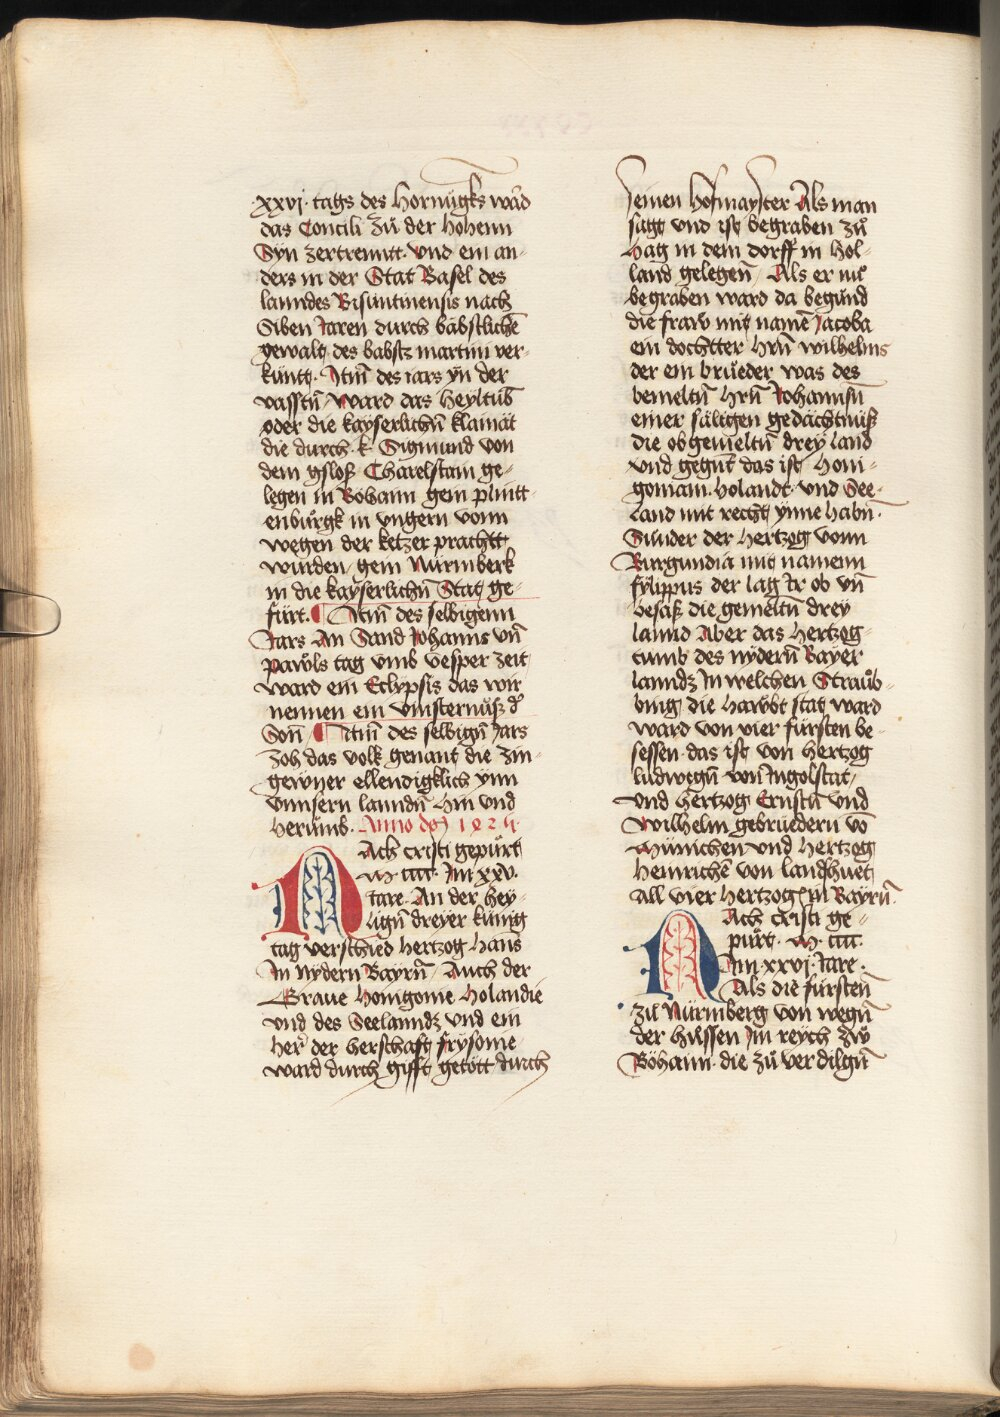 xxvj · tags des Hornüngks wad̄
das Concili Zů der hohenn
Syn zertrenntt · vnd ein an-
ders in der Stat Basel des
lanndes Bisuntinensis nach
Siben Jaren durch bäbstlichē
gewalt des babstz martini ver-
künt · Itm̄ des iars yn der
vasstn̄ ward das heyltūb
oder die kayserlichn̄ klainät
die durch · k · Sigmund von
dem gsloß Charelstain ge-
legen in Böhann gem plintt-
enbůrgk in vngern vonn
wegen der ketzer prachtt
wurden gem Nürmberk
in die kayserlichn̄ Stat ge-
fürt. ¶ Itm̄ des selbigenn
Jars An Sand Johanns vn̄
pawls tag vmb vesper zeit
ward ein Eclypsis das wir
nennen ein vinsternůsz d̄
Son̄ ¶ Itm̄ des selbign̄ Jars
zoh das volk genant die zin-
geyner ellendigklich ynn
vnnsern lanndn̄ hin vnd
herumb · Anno dm̄ 1424
NAch cristi gepůrt
M · cccc · Im xxv ·
Jare · An der hey-
lign̄ dreyer künig
tag verschied hertzog hans
In nydern Bayrn̄ / Auch der
Graue honigonie Holandie
vnd des Seelanndz vnd ein
her der herschaft frysonie
ward durch gifft getött durch
seinen hofmayster Als man
sagt vnd ist begraben zů
Hag in dem dorff in Hol-
land gelegen̄ / Als er nu
begraben ward da begund
die fraw mit namē Jacoba
ein dochtter hrn̄ wilhelms
der ein brůeder was des
bemeltn̄ hrn̄ Johannsn̄
einer säligen gedächtnüß
die obgemeltn̄ drey land
vnd gegnt das ist Honi-
goniam · Holandt · vnd See-
land mit recht ynne habn̄ ·
Sunder der hertzog vonn
Burgundia mit namenn
fylippus der lag Ir ob vn̄
besaß die gemeltn̄ drey
lannd Aber das hertzog-
tumb des nydern̄ Bayer
lanndz In welchen Straub-
bing die hawbt stat ward
ward von vier fürsten be-
sessen · das ist von hertzog
ludwegn̄ von Ingolstat /
vnd hertzog Ernstn̄ vnd
wilhelm gebruedern vō
München vnd hertzog
heinrichē von landshuet
All vier hertzog in Bayrn̄
NAch cristi ge-
pürt · M · cccc ·
Im xxvj · Jare ·
Als die fürsten̄
zu Nürmberg von wegn̄
der hussen Im reych zw
Böhann · die zů verdilgn̄